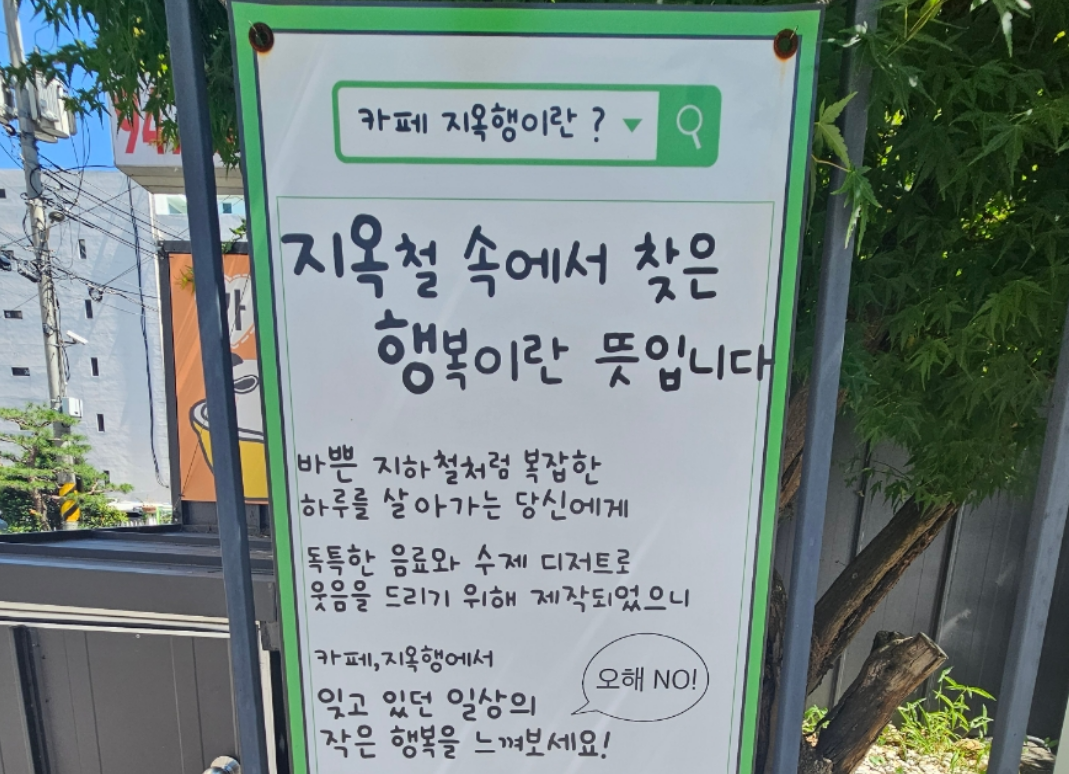 카페 지옥행이란 ?
지옥철 속에서 찾은
행복이란 뜻입니다
바쁜 지하철처럼 복잡한
하루를 살아가는 당신에게
독특한 음료와 수제 디저트로
웃음을 드리기 위해 제작되었으니
카페,지옥행에서
오해 NO!
잊고 있던 일상의
작은 행복을 느껴보세요!